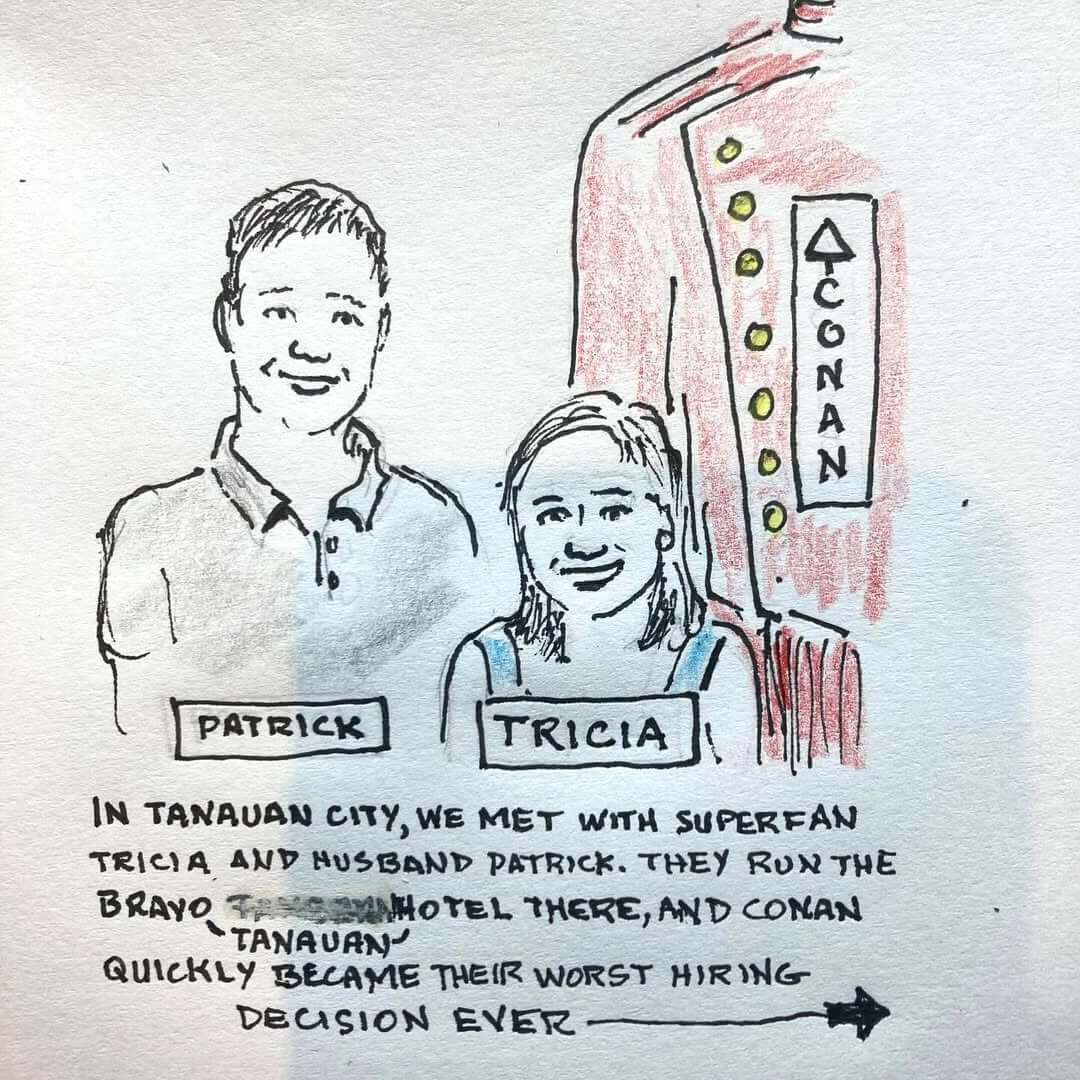 CONAN
PATRICK
TRICIA
IN TANAUAN CITY, WE MET WITH SUPERFAN
TRICIA AND HUSBAND PATRICK. THEY RUN THE
BRAVO HOTEL THERE, AND CONAN
TANAUAN
QUICKLY BECAME THEIR WORST HIRING
DECISION EVER